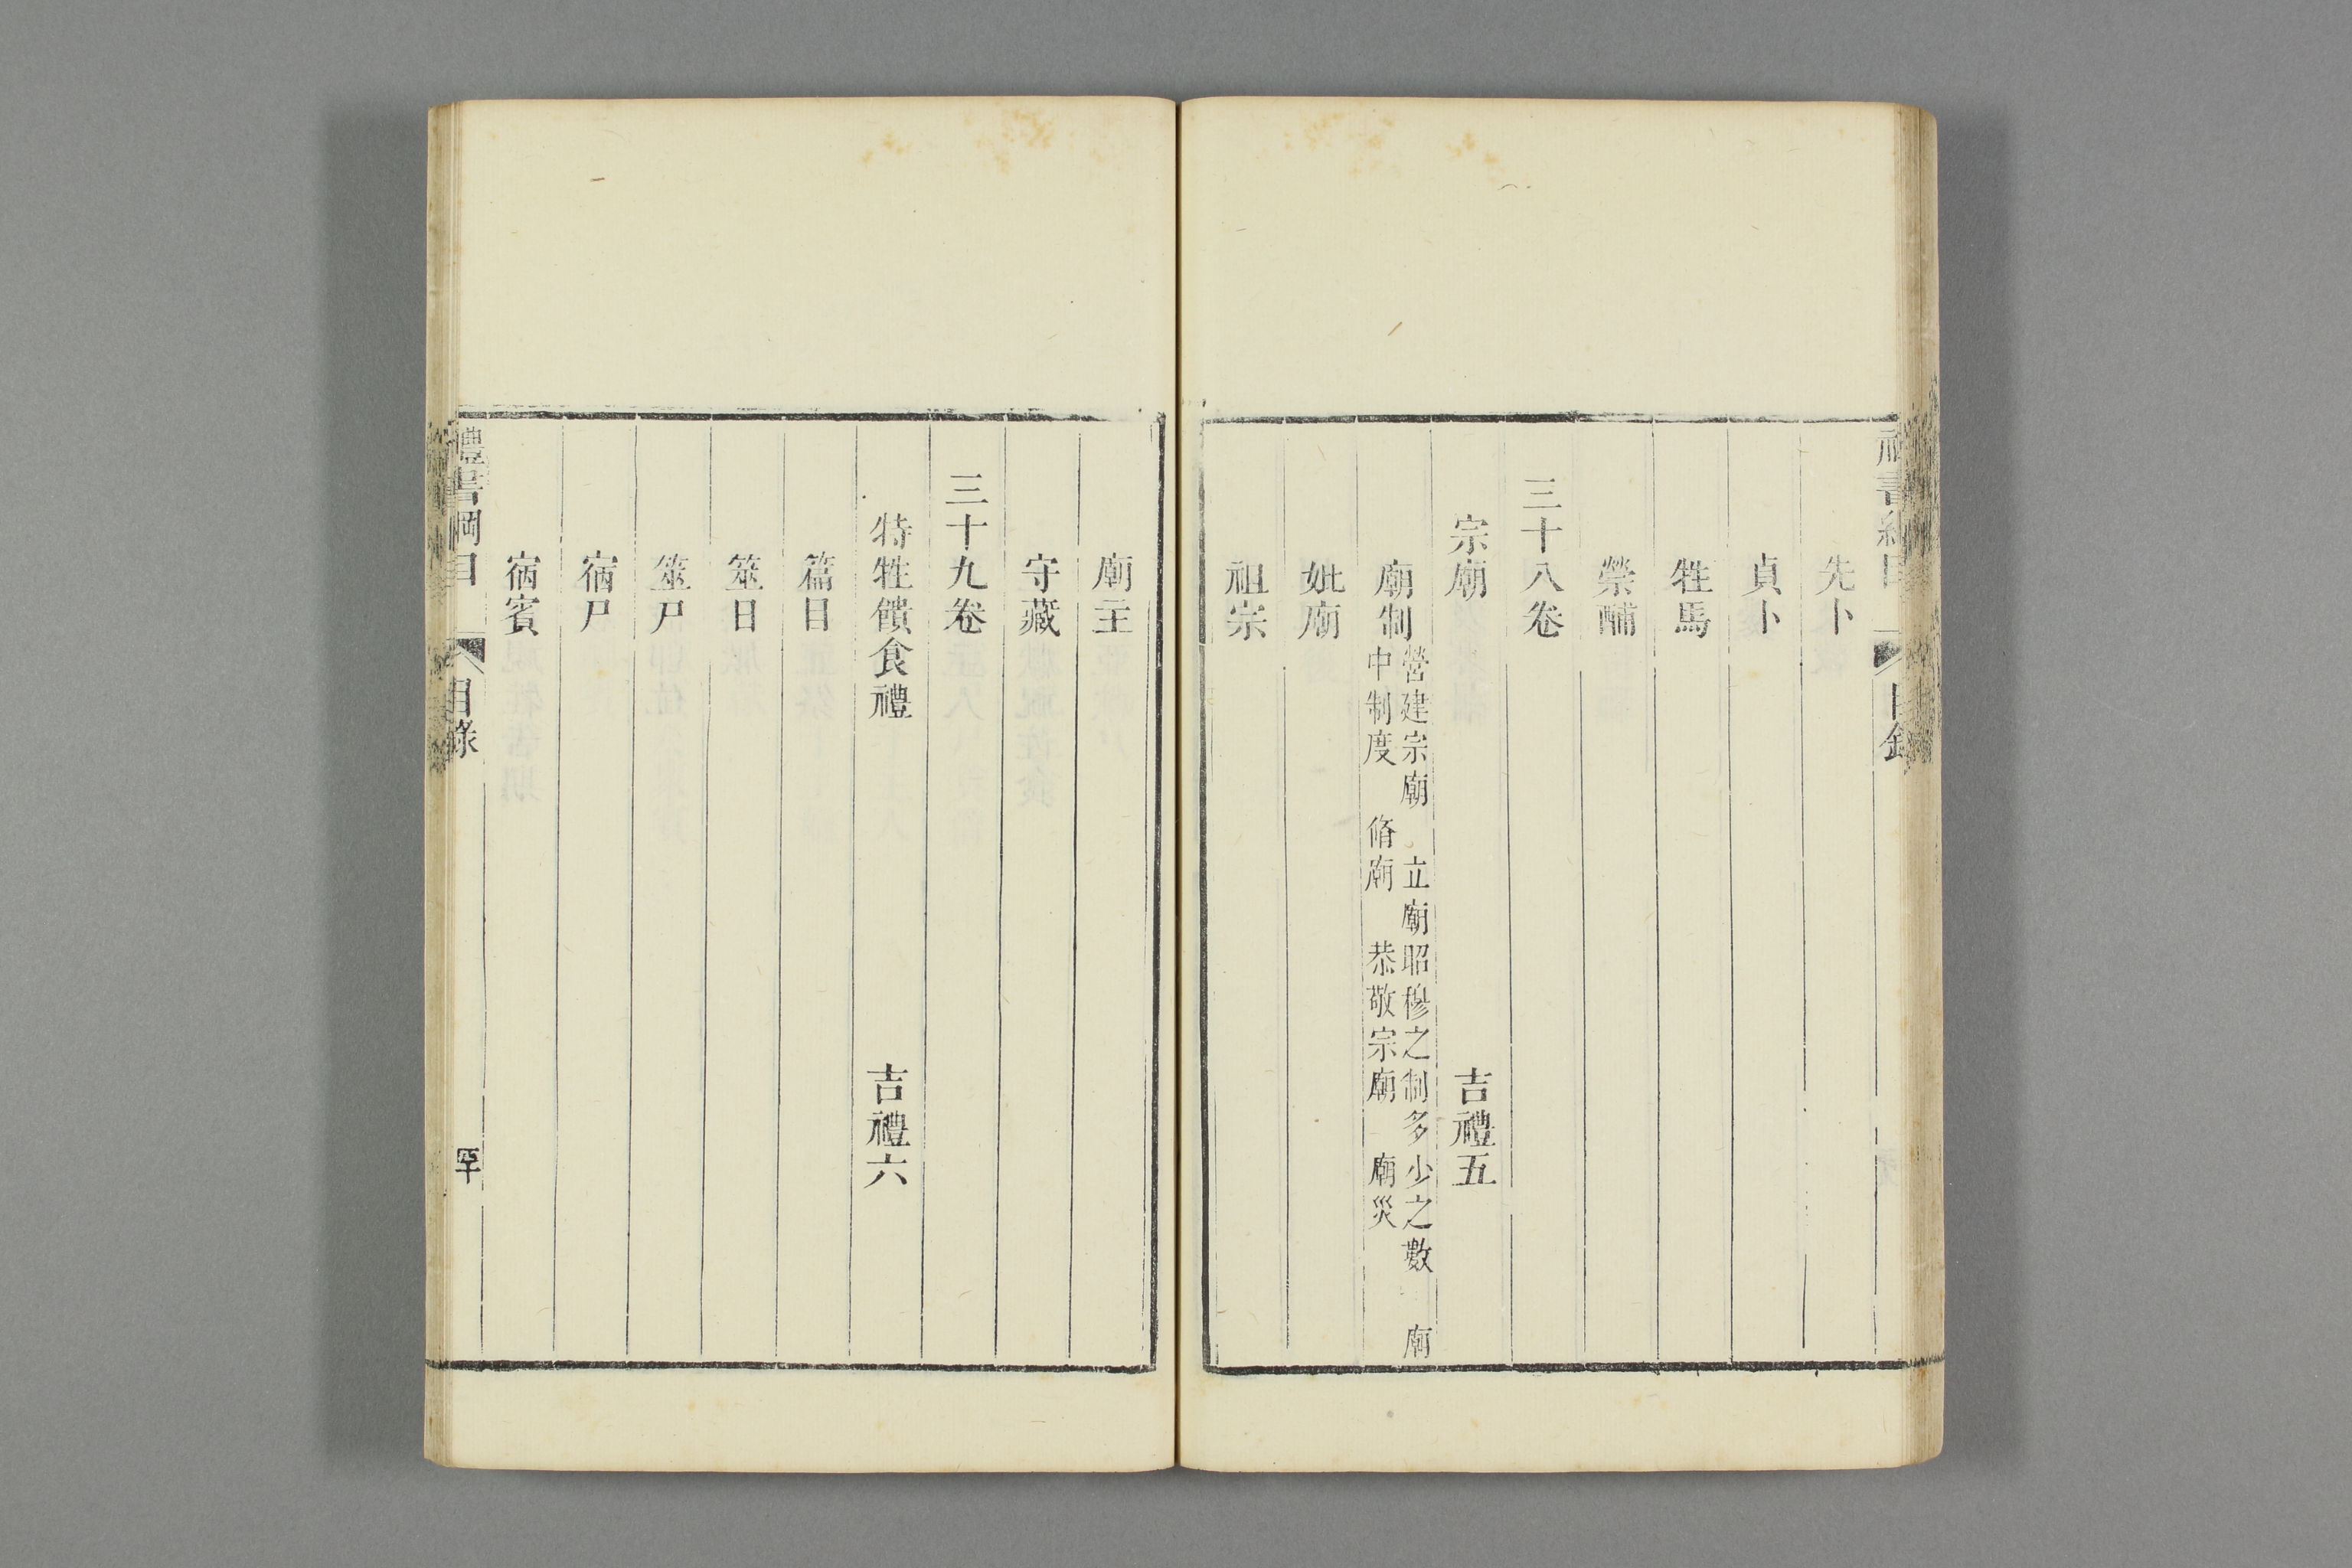 先卜
貞卜
牲馬
禜酺
三十八卷
宗廟 吉禮五
廟制 營建宗廟 立廟昭穆之制多少之數 廟
中制度 脩廟 恭敬宗廟 廟災
妣廟
祖宗
廟主
守藏
三十九卷
特牲饋食禮 吉禮六
篇目
筮日
筮尸
宿尸
宿賓
禮書綱目 目錄